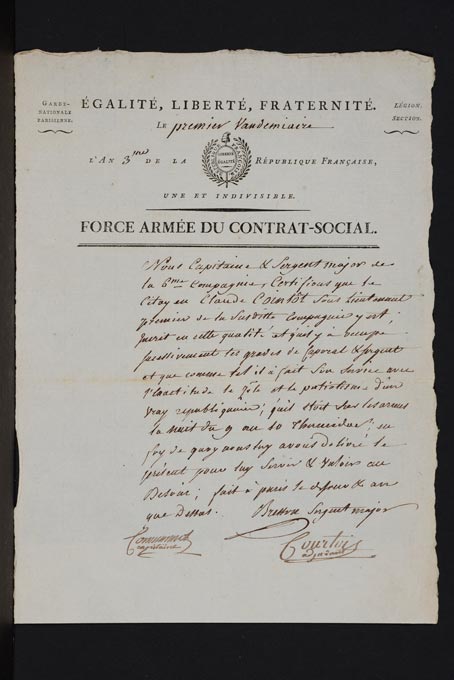 GARDE-
NATIONALE
PARISIENNE.
ÉGALITÉ, LIBERTÉ, FRATERNITÉ.
LÉGION.
SECTION.
LE premier Vandemiaire
L'AN 3me DE LA RÉPUBLIQUE FRANÇAISE,
UNE ET INDIVISIBLE.
FORCE ARMÉE DU CONTRAT-SOCIAL.
Nous Capitaine & Sergent major de
la 6me Compagnie, Certifions que le
Citoyen Claude Cointôt Sous Lieutenant
premier de la Susditte Compagnie y est
inscrit en cette qualité et qu'il y a occupé
successivement les grades de Caporal & Sergent
et que comme tel il a fait Son Service avec
l'exactitude le Zèle et le patriotisme d'un
vray republiquain; qu'il etoit Sous les armes
la nuit du 9 au 10 Thermidor; en
foy de quoy nous luy avons delivré le
présent pour luy Servir & Valoir au
Besoin; fait à paris le jour & an
que Dessus. Sergent major
capitaine
Courtois